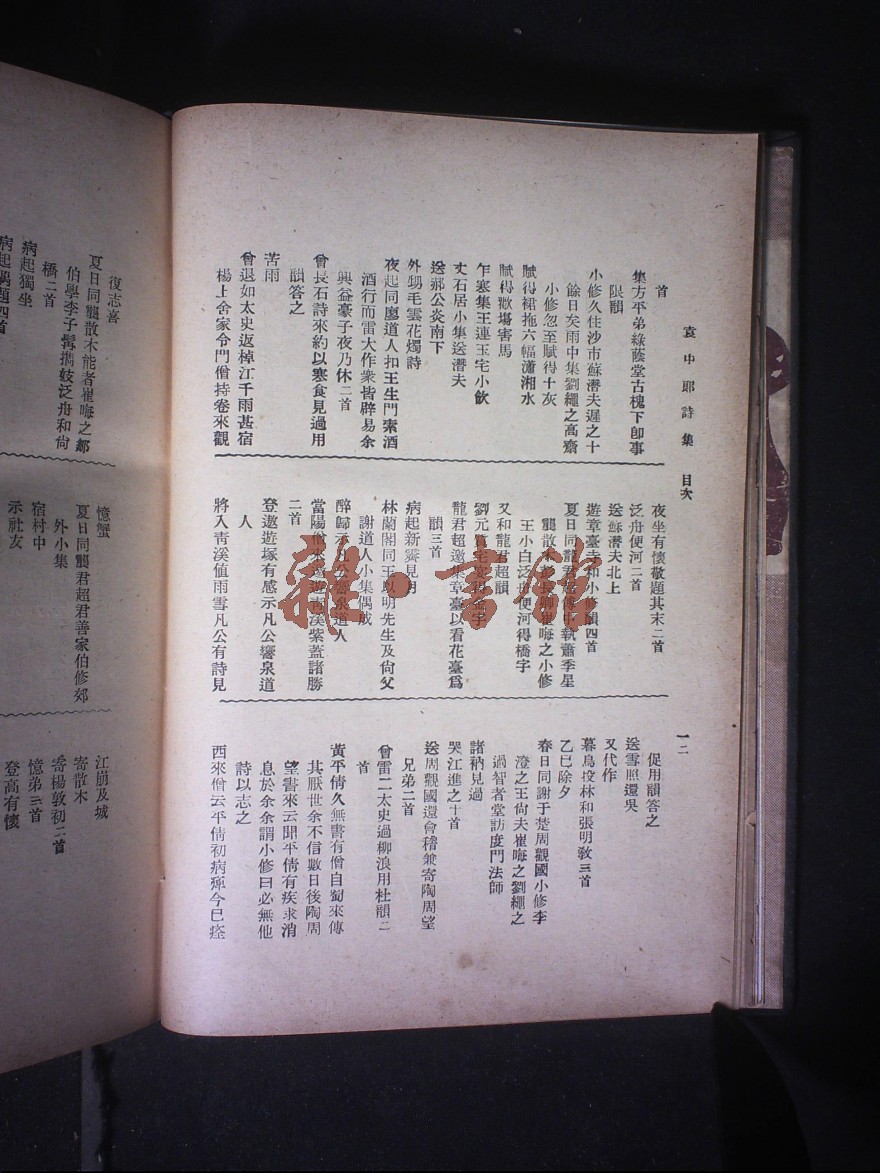 袁中郎詩集　目次
一二
首
集方平弟綠蔭堂古槐下卽事
限韻
小修久住沙市蘇潛夫遲之十
餘日矣雨中集劉繩之高齋
小修忽至賦得十灰
賦得裙拖六幅瀟湘水
賦得歡塲害馬
乍寒集王連玉宅小飮
丈石居小集送潛夫
送郝公炎南下
外甥毛雲花燭詩
夜起同廖道人扣王生門索酒
酒行而雷大作衆皆辟易余
興益豪子夜乃休二首
曾長石詩來約以寒食見過用
韻答之
苦雨
曾退如太史返棹江干雨甚宿
楊上舍家令門僧持卷來觀
夜坐有懷敬題其末二首
泛舟便河二首
送蘇潛夫北上
遊章臺寺和小修韻四首
夏日同龍君超傅中執蕭季星
龔散木彭長卿崔晦之小修
王小白泛舟便河得橋字
又和龍君超韻
劉元質宅宴得
字
龍君超邀集章臺以看花臺爲
韻三首
病起新霽見月
林蘭閣同王以明先生及尙父
謝道人小集偶成
醉歸示凡公響泉道人
當陽僧來邀遊靑溪紫蓋諸勝
二首
登邀遊塚有感示凡公響泉道
人
將入靑溪値雨雪凡公有詩見
促用韻答之
送雪照還吳
又代作
暮鳥投林和張明敎三首
乙巳除夕
春日同謝于楚周觀國小修李
澄之王尙夫崔晦之劉繩之
過智者堂訪度門法師
諸衲見過
哭江進之十首
送周觀國還會稽兼寄陶周望
兄弟二首
曾雷二太史過柳浪用杜韻二
首
黃平倩久無書有僧自蜀來傳
其厭世余不信數日後陶周
望書來云聞平倩有疾求消
息於余余謂小修曰必無他
詩以志之
西來僧云平倩初病癉今巳痊
復志喜
夏日同龔散木能者崔晦之鄒
伯學李子髯攜妓泛舟和尙
橋二首
病起獨坐
病起偶題四首
憶蟹
夏日同龔君超君善家伯修郊
外小集
宿村中
示社友
江崩及城
寄散木
寄楊敦初二首
憶弟三首
登高有懷
雜·書館